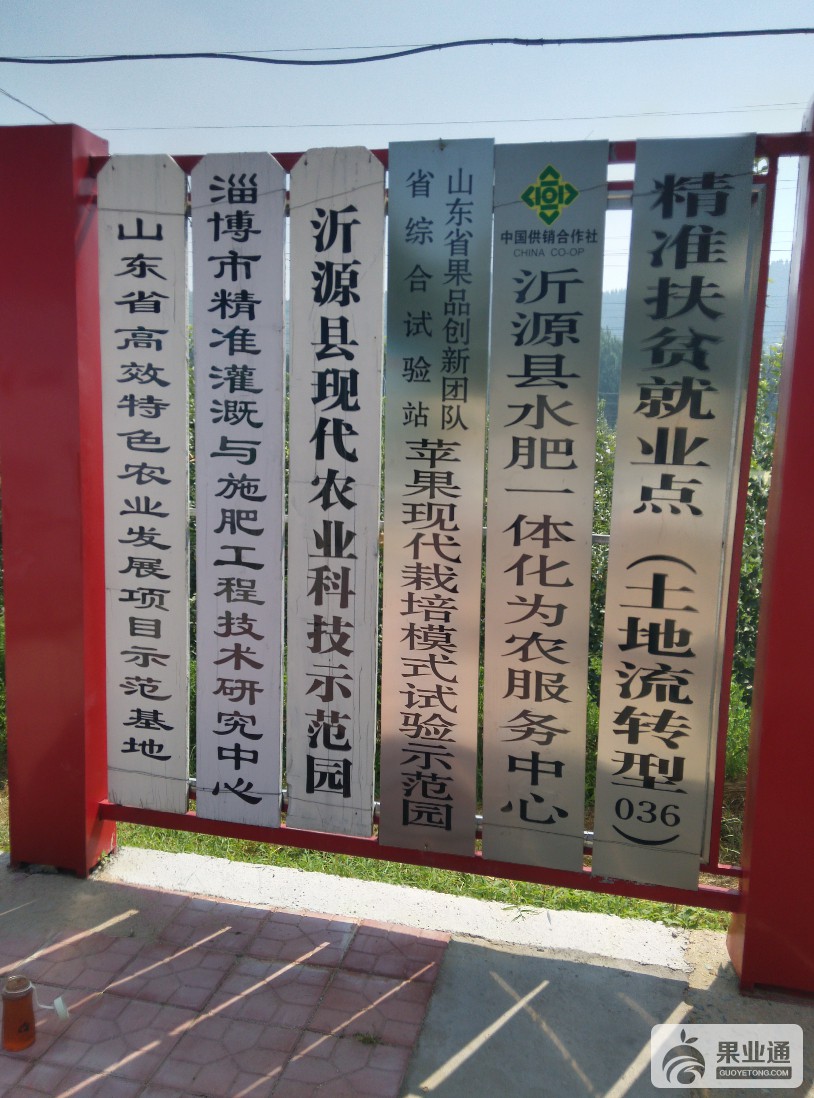 山东省高效特色农业发展项目示范基地
淄博市精准灌溉与施肥工程技术研究中心
沂源县现代农业科技示范园
山东省果品创新团队
省综合试验站
苹果现代栽培模式试验示范园
中国供销合作社
CHINA CO-OP
沂源县水肥一体化为农服务中心
精准扶贫就业点（土地流转型036）
果业通
GUOYETONG.COM